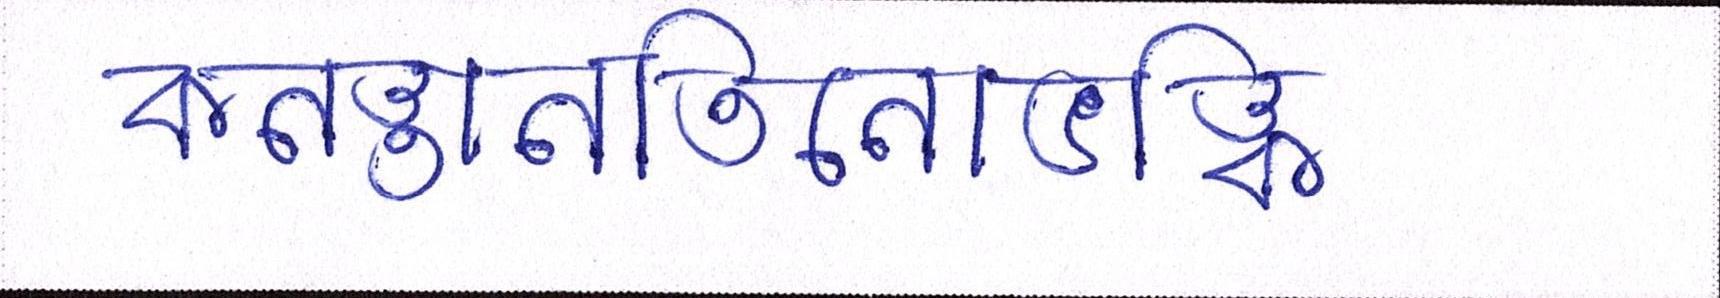 কনস্তানতিনোভস্কি